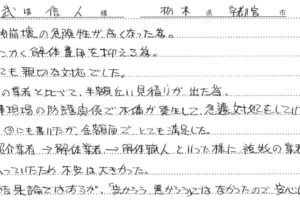 武 信人 様 栃木 県 宇都宮 市
崩壊の危険性が高くなった為。
かく解体費用を抑える為。
ても親切な対応でした。
の業者と比べて、半額近い見積りが出た為。
現場の防護関係で不備が発生して、急遽対応をしてい
③にも書いたが、金額面で、とても満足した。
業者→解体業者→解体職人といった様に、複数の業者
入っていたため不安は大きかった。
結果論ではあるが、「安かろう悪かろう」ではなかったので安心し